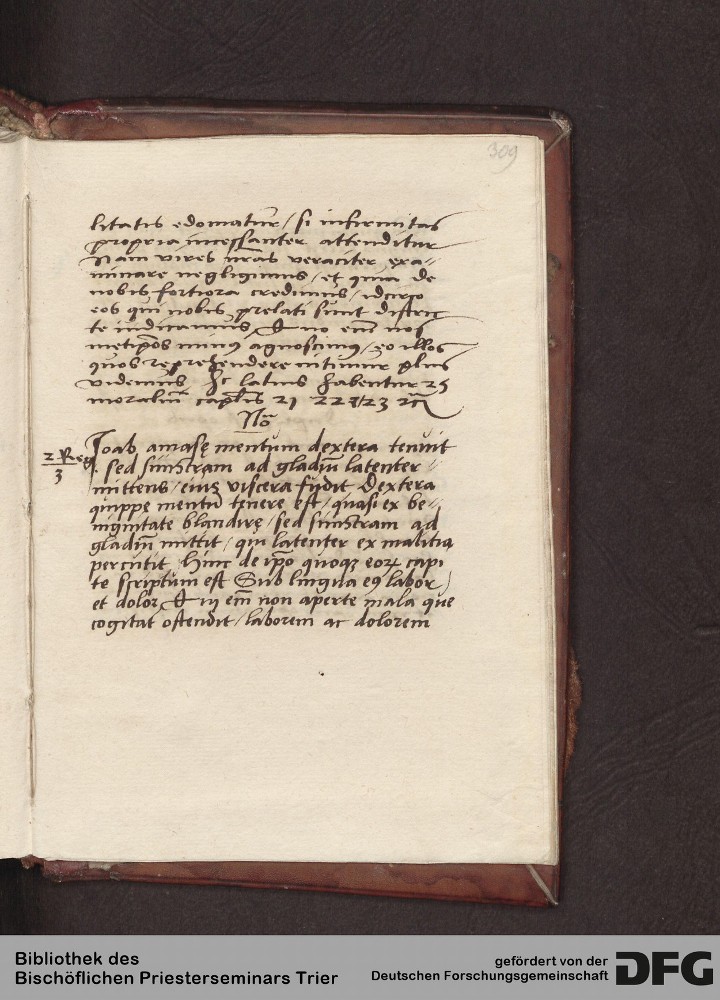 309
litatis edomatur / si infirmitas
propria incessanter attenditur
Nam vires nr̃as veraciter exa-
minare negligimus / et quia de
nobis fortiora credimus / idcirco
eos qui nobis prelati sunt distric
te iudicamus Quo em̃ nos
metip̃os minus agnoscimus / eo illos
quos reprehendere nitimur plus
videmus Hc latius habentur 25
moraliũ cap̃lis 21 22 23
No
2 Reg
3
Ioab amasę mentum dextera tenuit
sed sinistram ad gladiũ latenter
mittens / eius viscera fudit Dextera
quippe mentũ tenere est / quasi ex be-
nignitate blandirę / sed sinistram ad
gladiũ mittit / qui latenter ex malitia
percutit Hinc de ip̃o quoqꝫ eoꝝ capi
te scriptum est Sub lingua eꝰ labor /
et dolor Qui em̃ non aperte mala que
cogitat ostendit / laborem ac dolorem
Bibliothek des
Bischöflichen Priesterseminars Trier
gefördert von der
Deutschen Forschungsgemeinschaft
DFG